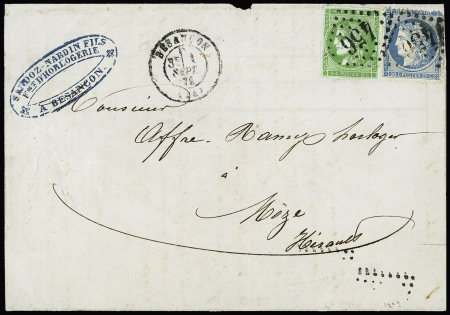 SANDOZ-NARDIN FILS
Fts D'HORLOGERIE
A BESANÇON
BESANÇON
1
SEPT
(24)
456
456
Monsieur
Affre-Ramey horloger
à
Mèze
Hérault